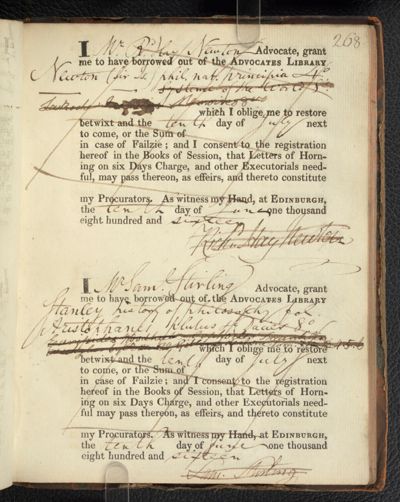 268
I Mr Rd Hay Newton Advocate, grant
me to have borrowed out of the ADVOCATES LIBRARY
Newton (Sir Is) phil. nat. principia 4o
systeme of the World 8
which I oblige me to restore
betwixt and the tenth day of July next
to come, or the Sum of
in case of Failzie; and I consent to the registration
hereof in the Books of Session, that Letters of Horn-
ing on six Days Charge, and other Executorials need-
ful, may pass thereon, as effeirs, and thereto constitute
my Procurators. As witness my Hand, at EDINBURGH,
the tenth day of June one thousand
eight hundred and sixteen
Richd Hay Newton
I Mr Sam. Stirling Advocate, grant
me to have borrowed out of the ADVOCATES LIBRARY
Stanley history of philosophy fol
Aristophanes
which I oblige me to restore
betwixt and the tenth day of July next
to come, or the Sum of
in case of Failzie; and I consent to the registration
hereof in the Books of Session, that Letters of Horn-
ing on six Days Charge, and other Executorials need-
ful may pass thereon, as effeirs, and thereto constitute
my Procurators. As witness my Hand, at EDINBURGH,
the tenth day of June one thousand
eight hundred and sixteen
Sam. Stirling